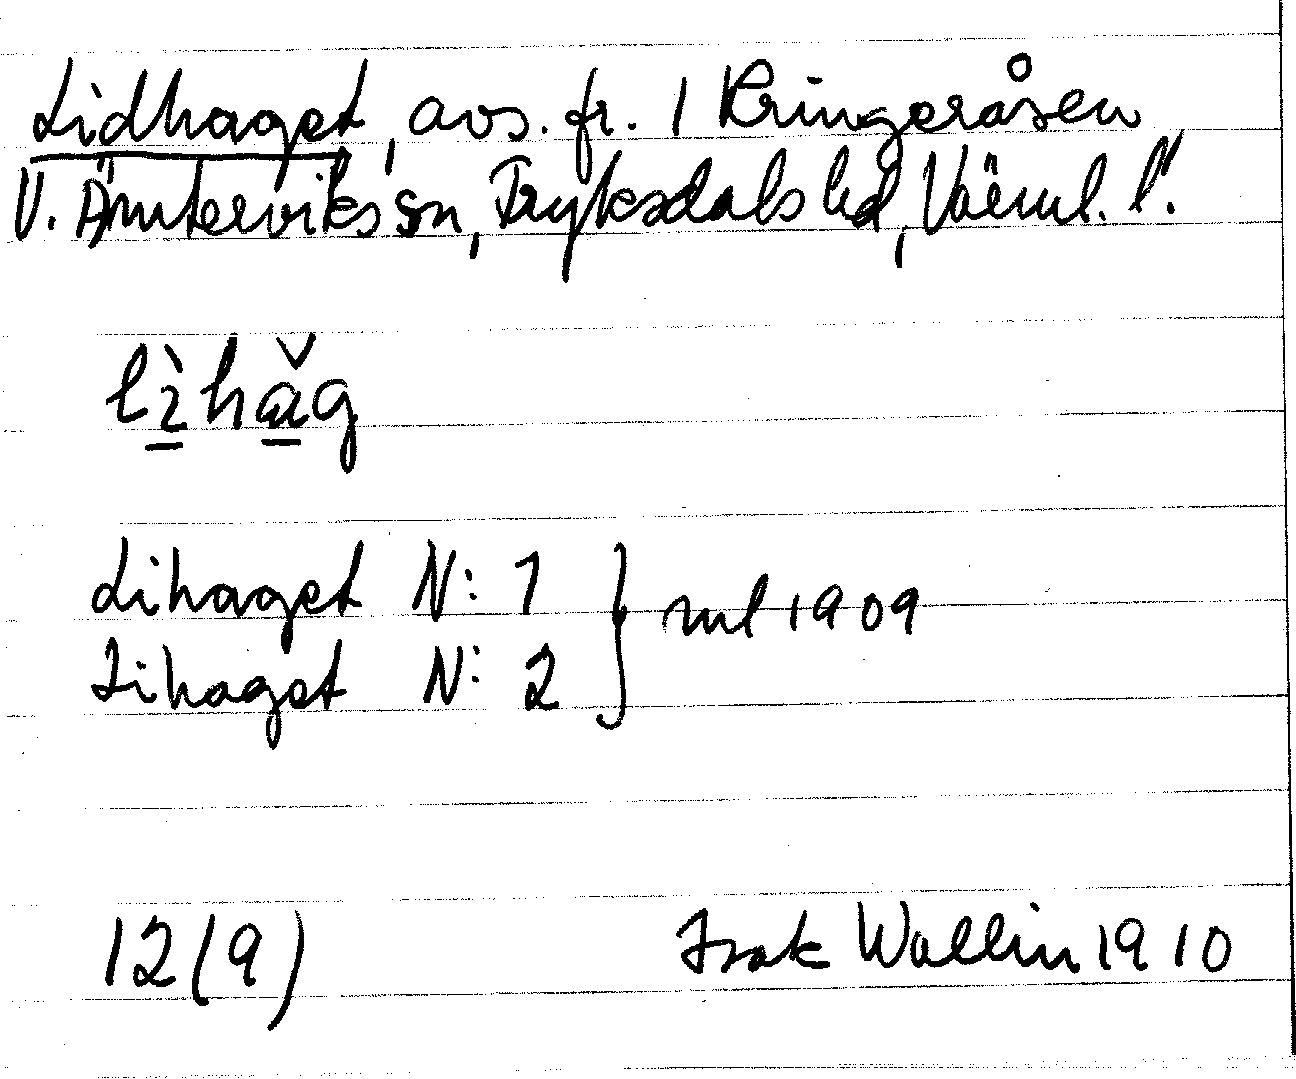 Lidhaget, avs. fr. 1 Kringeråsen
V. Ämterviks sn, Fryksdals hd, Värml. l.
lìhăg
Lihaget N: 1
Lihaget N: 2
rul 1909
12(9) Isak Wallin 1910